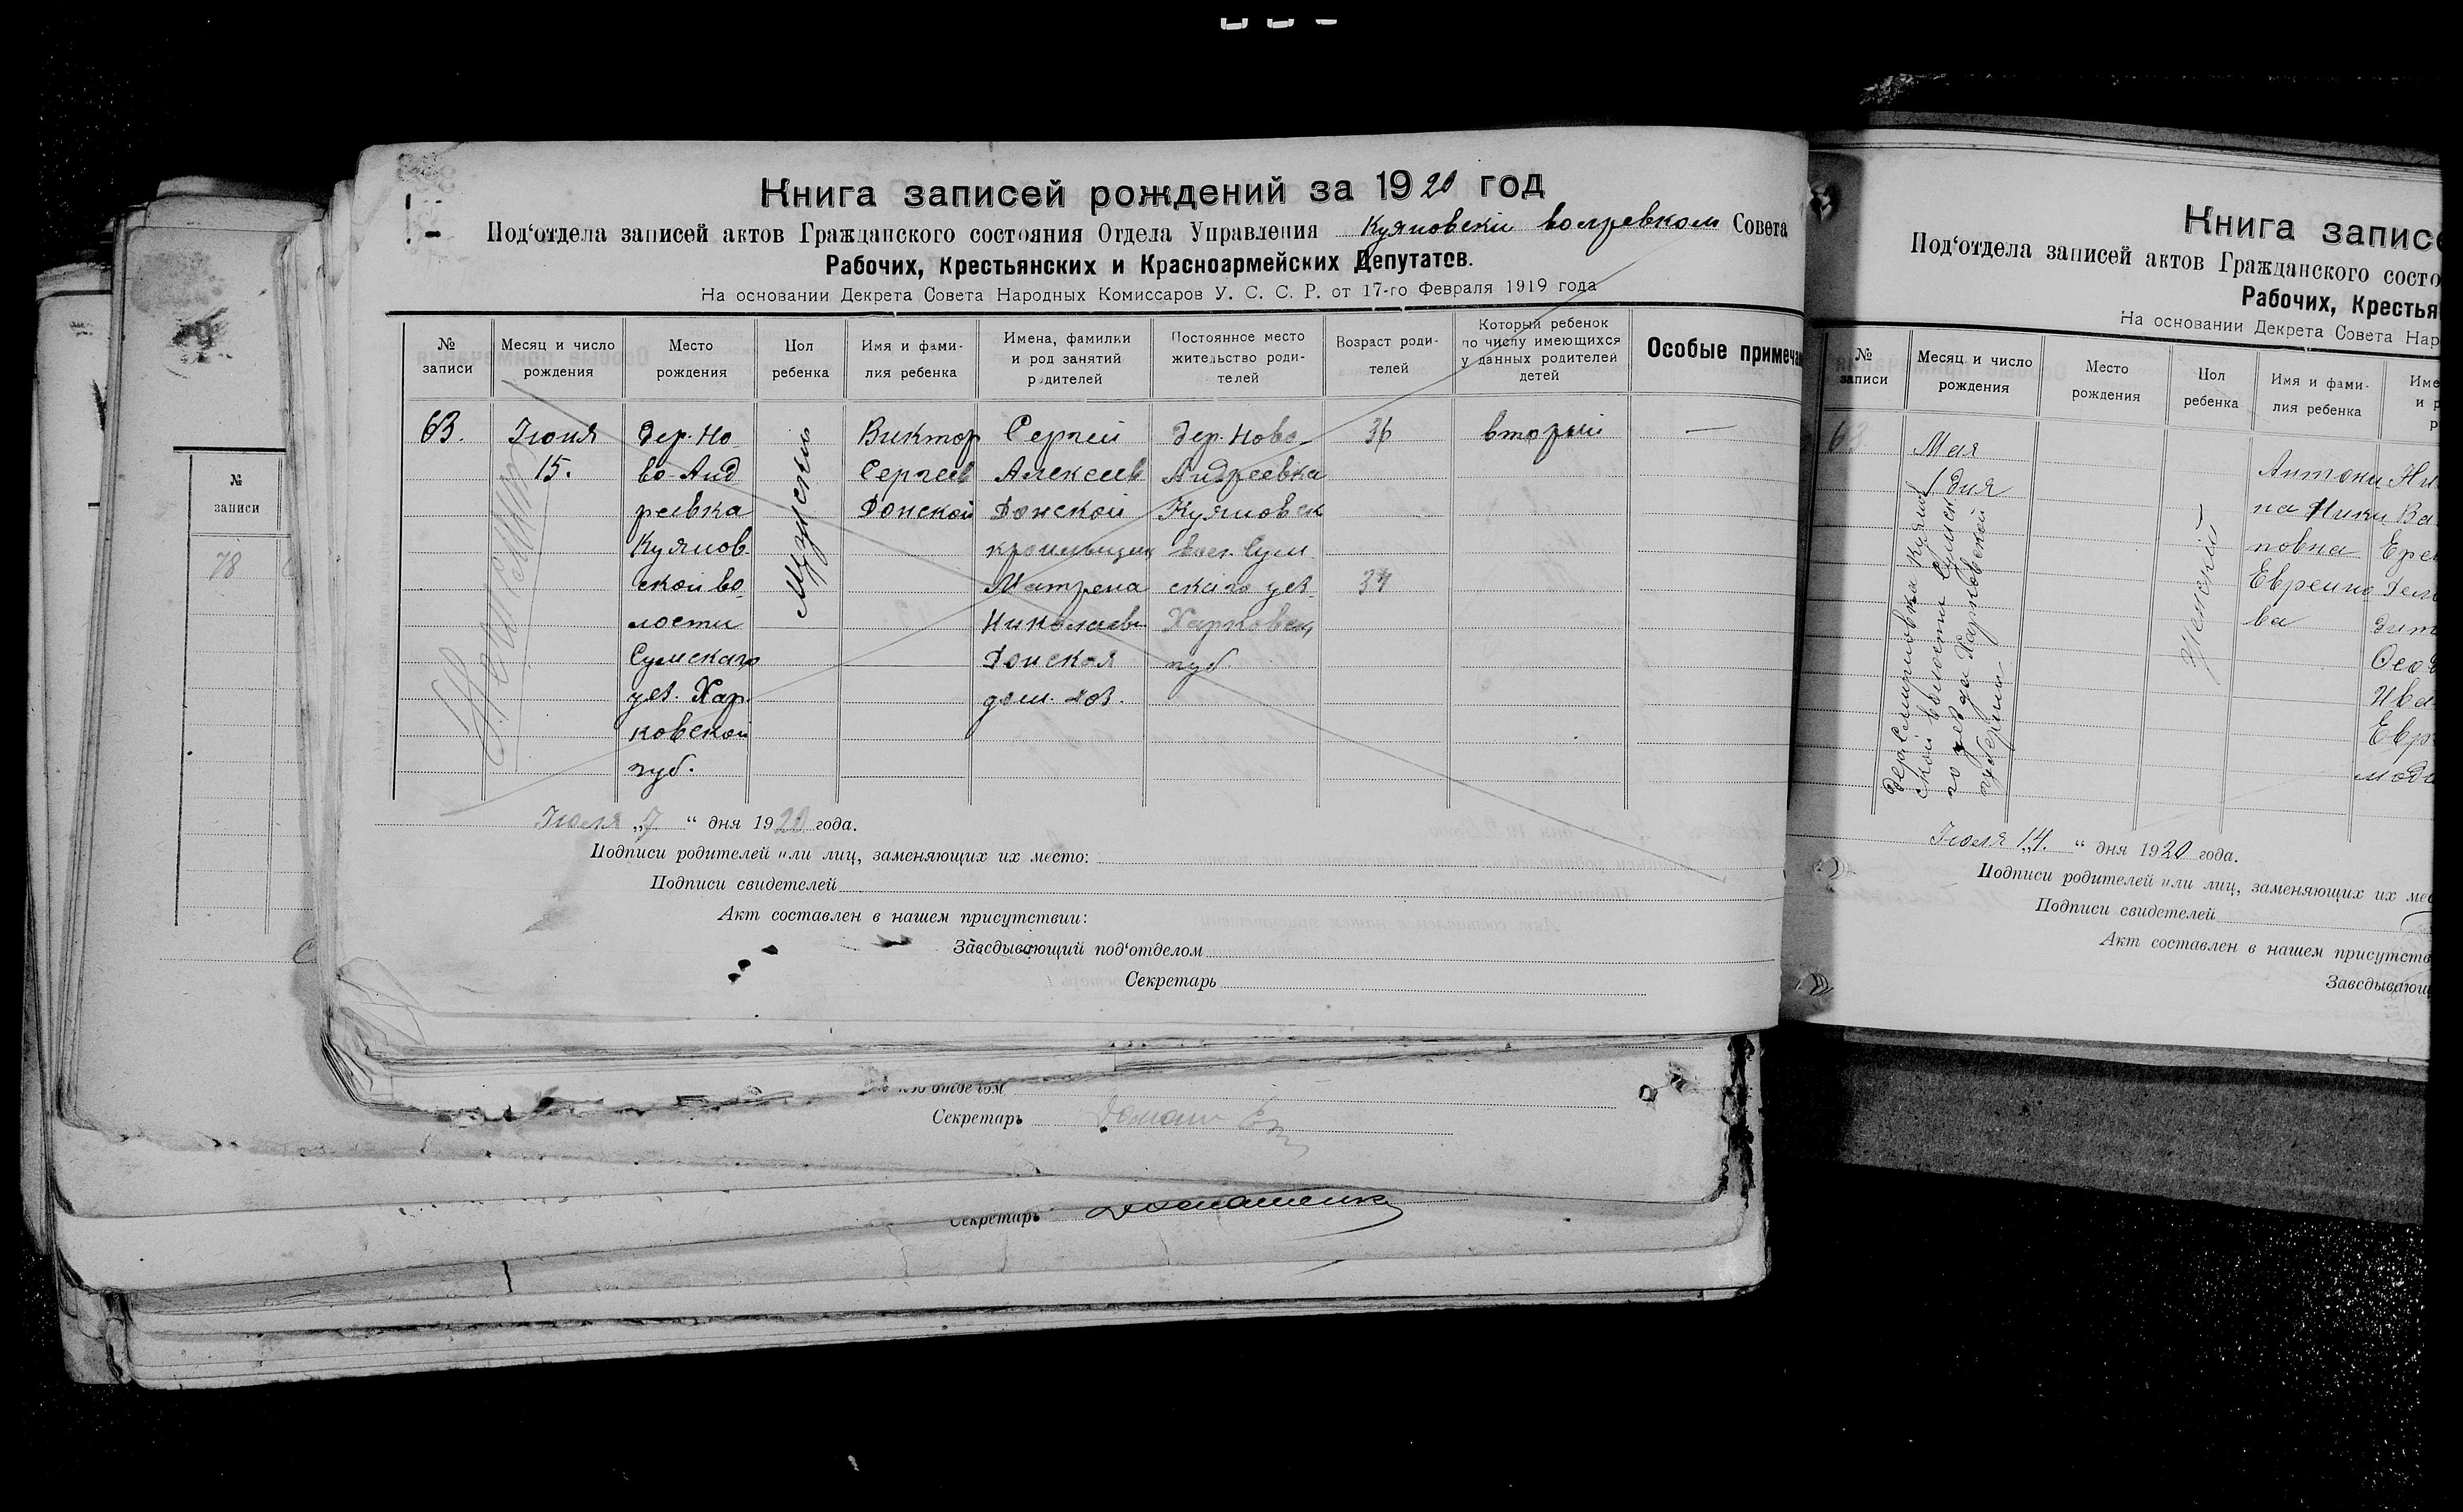 Книга записей рождений за 1920 год
Под‘отдела записей актов Гражданского состояния Отдела Управления Куяновскiй волревком Совета
Рабочих, Крестьянских и Красноармейских Депутатов.
На основании Декрета Совета Народных Комиссаров У. С. С. Р. от 17-го Февраля 1919 года
№ записи
Месяц и число рождения
Место рождения
Пол ребенка
Имя и фами-
лия ребенка
Имена, фамилки
и род занятий
родителей
Постоянное место
жительство роди-
телей
Возраст роди-
телей
Который ребенок
по числу имеющихся
у данных родителей
детей
Особые примеча
63.
Iюня
15.
Дер. Но
во-Анд
реевка
Куянов
ской во
лости
Сумскаго
уез. Хар
ковской
губ.
Мужской
Виктор
Сергеев
Донской
Сергей
Алексеев
Донской
Матрена
Николаевн
Донская
дом. хоз.
Дер. Ново-
Андреевка
Куяновск
вол. Сум
скаго уез.
Харковск
губ
36
34
второй
—
Iюля „7 “ дня 1920 года.
Подписи родителей или лиц, заменяющих их место:
Подписи свидетелей
Акт составлен в нашем присутствии:
Заведывающий под‘отделом
Секретарь
№
записи
78
Секретарь
Секретарь Домашенко
Книга записе
Под‘отдела записей актов Гражданского состо
Рабочих, Крестья
На основании Декрета Совета Нар
№
записи
Месяц и число
рождения
Место
рождения
Пол
ребенка
Имя и фами-
лия ребенка
Име
и р
р
Мая
1 дня
Женский
Антони
на Ники
повна
Евреино
ва
Ива
Евр
Iюля „14. “ дня 1920 года.
Подписи родителей или лиц, заменяющих их мес
Подписи свидетелей
Акт составлен в нашем присутств
Заведывающ